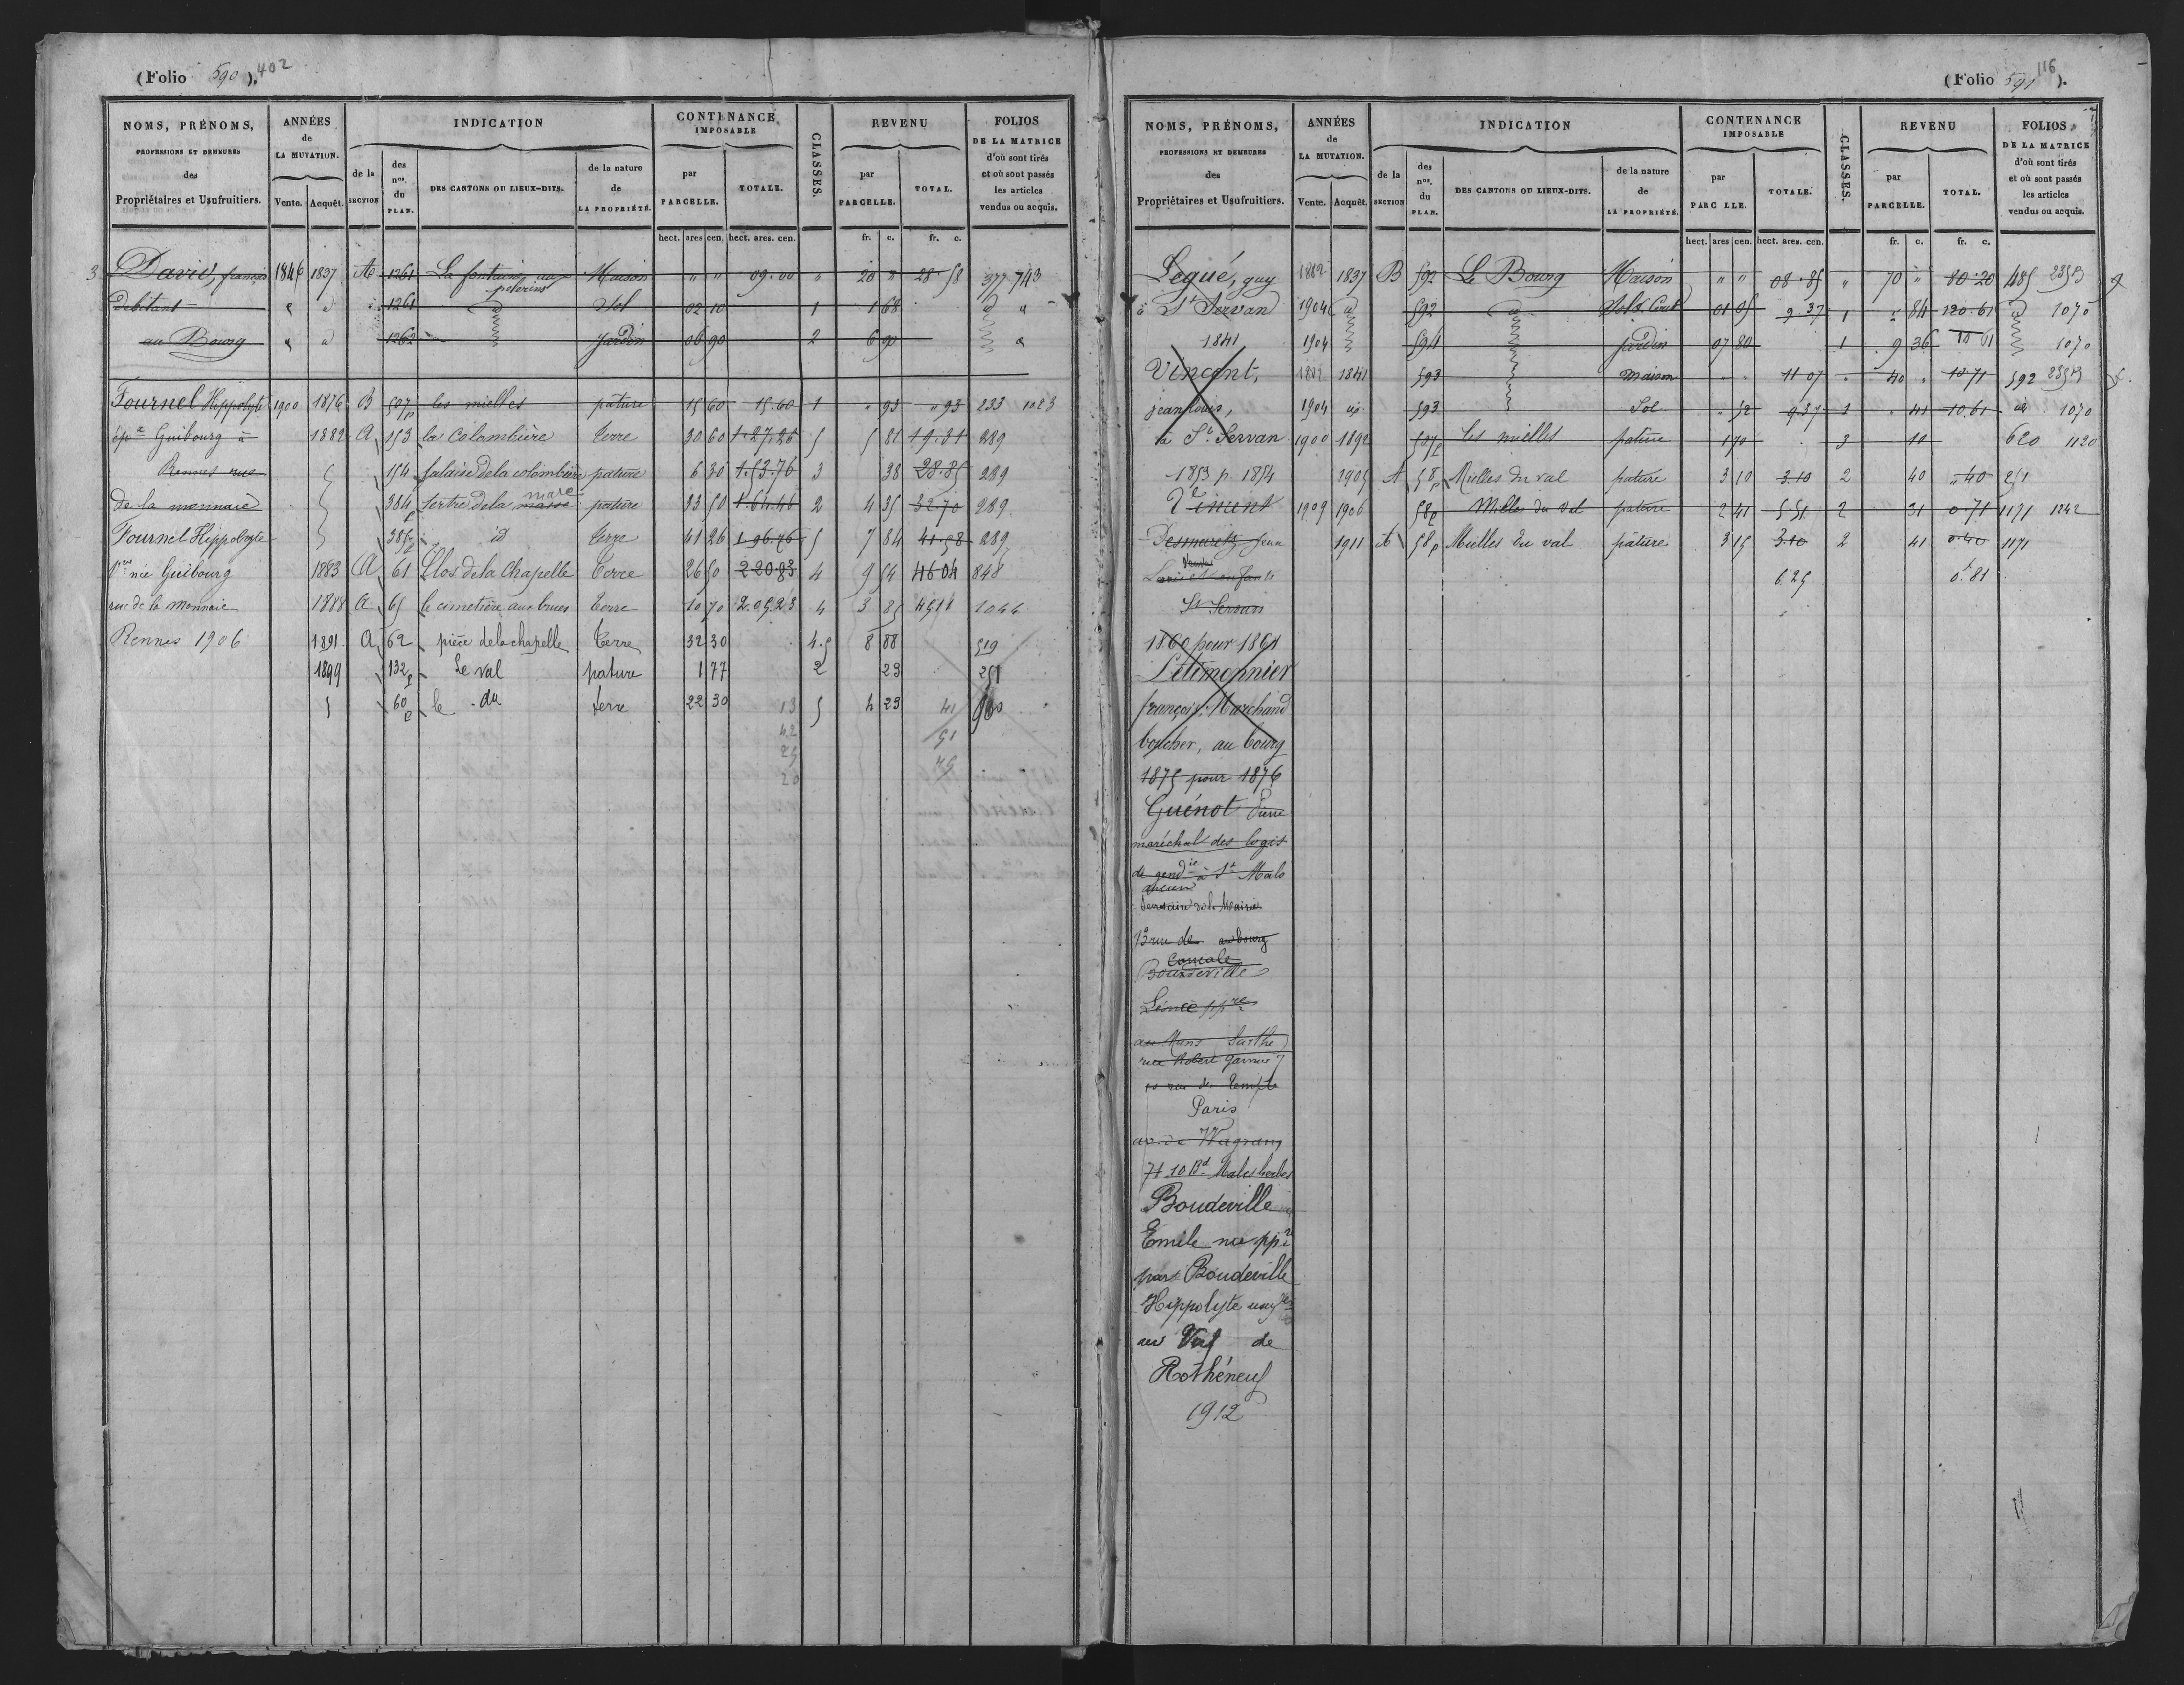 (Folio 590). 402
NOMS, PRÉNOMS, PROFESSIONS ET DEMEURES des Propriétaires et Usufruitiers.
ANNÉES de LA MUTATION. Vente. Acquêt.
INDICATION de la SECTION des nos. du PLAN. DES CANTONS OU LIEUX-DITS. de la nature de LA PROPRIÉTÉ.
CONTENANCE IMPOSABLE par PARCELLE. TOTALE.
CLASSES.
REVENU par PARCELLE. TOTAL.
FOLIOS DE LA MATRICE d'où sont tirés et où sont passés les articles vendus ou acquis.
hect. ares cen. hect. ares. cen. fr. c. fr. c.
3 David, françois 1846 1837 A 1261 La fontaine aux pelerins Maison " " 09.00 " 20 " 28.58 377 743
Debitant " d 1261 d Sol 02 10 1 1 68 d "
au Bourg " d 1262 Jardin 06 90 2 6 90 "
Fournel Hippolyte 1900 1876 B 507p les mielles pâture 15 60 15.60 1 " 93 " 93 233 1023
épse Guibourg à 1882 A 153 la Colombière terre 30 60 1.27.26 5 5 81 19.31 289
Rennes rue 154 falaise de la colombière pature 6 30 1.53.76 3 38 28.85 289
de la monnaie 384p tertre de la masse mare pature 33 50 1.64.46 2 4 35 32.70 289
Fournel Hippolyte 385p id terre 41 26 1.96.76 5 7 84 41.58 289
Vve née Guibourg 1883 A 61 Clos de la Chapelle Terre 26 50 2 20.83 4 9 54 46 04 848
rue de la Monnaie 1888 A 65 le cimetière aux brues terre 10 70 2.05.23 4 3 85 1044
Rennes 1906 1891 A 62 pièce de la chapelle Terre 32 30 4.5 8 88 519
1899 132p Le val pature 1 77 2 23 251
60p le du terre 22 30 13 5 4 23 41
42 51
25
20
(Folio 591). 116
NOMS, PRÉNOMS, PROFESSIONS ET DEMEURES des Propriétaires et Usufruitiers.
ANNÉES de LA MUTATION. Vente. Acquêt.
INDICATION de la SECTION des nos. du PLAN. DES CANTONS OU LIEUX-DITS. de la nature de LA PROPRIÉTÉ.
CONTENANCE IMPOSABLE par PARC LLE. TOTALE.
CLASSES.
REVENU par PARCELLE. TOTAL.
FOLIOS DE LA MATRICE d'où sont tirés et où sont passés les articles vendus ou acquis.
hect. ares cen. hect. ares. cen. fr. c. fr. c.
Lequé, guy 1882 1837 B 592 Le Bourg Maison " " 08.85 " 70 " 80.20 485
à St Servan 1904 d 592 d Sol & Cour 01 05 9 37 1 " 84 120.61 d 1070
1841 1904 594 jardin 07 80 1 9 36 10 61 1070
Vincent, 1882 1841 593 maison " " 11 07 " 40 " 10.71 592
jean louis, 1904 593 Sol " 52 9.37 3 " 41 10.61 1070
à St Servan 1900 1892 507p Les mielles pature 1 70 3 10 620 1120
1853 p. 1854 1905 A 58p Mielles du val pature 3 10 3.10 2 40 " 40 251
Vincent 1909 1906 58p Mielles du Val pature 2 41 5 51 2 31 0.71 1171 1242
Desmaretz Jean 1911 A 58p Mielles du val pâture 3 15 3.10 2 41 0.40 1171
Veuve et enfants 6.25 0f 81
St Servan
1860 pour 1861
Letimonnier
françois, Marchand
boucher, au bourg
1875 pour 1876
Guénot Pierre
maréchal des logis
de gendie à St Malo
ancien
Secrétaire de la Mairie
13 rue de au bourg
Cancale
Boudeville
Léonce ppre
au Mans Sarthe
rue Robert Garnier 7
rue du Temple
Paris
av. de Wagram
74 10 Bd Malesherbes
Boudeville
Emile nue ppre
par Boudeville
Hippolyte usuf
au Val de
Rothéneuf
1912